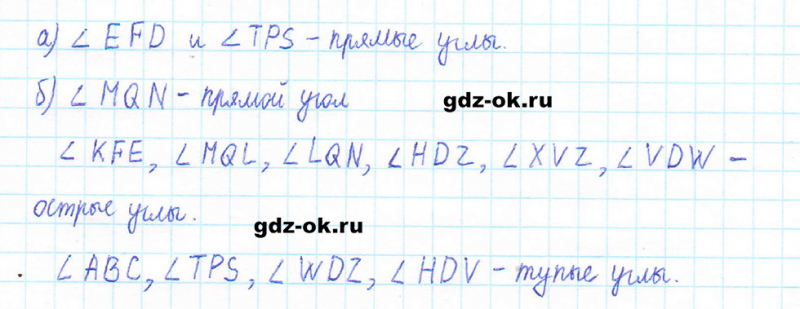 а) ∠ EFD и ∠TPS – прямые углы.
б) ∠ MQN – прямой угол
gdz-ok.ru
∠ KFE, ∠MQL, ∠LQN, ∠HDZ, ∠XVZ, ∠VDW –
острые углы.
gdz-ok.ru
∠ABC, ∠TPS, ∠WDZ, ∠HDV – тупые углы.